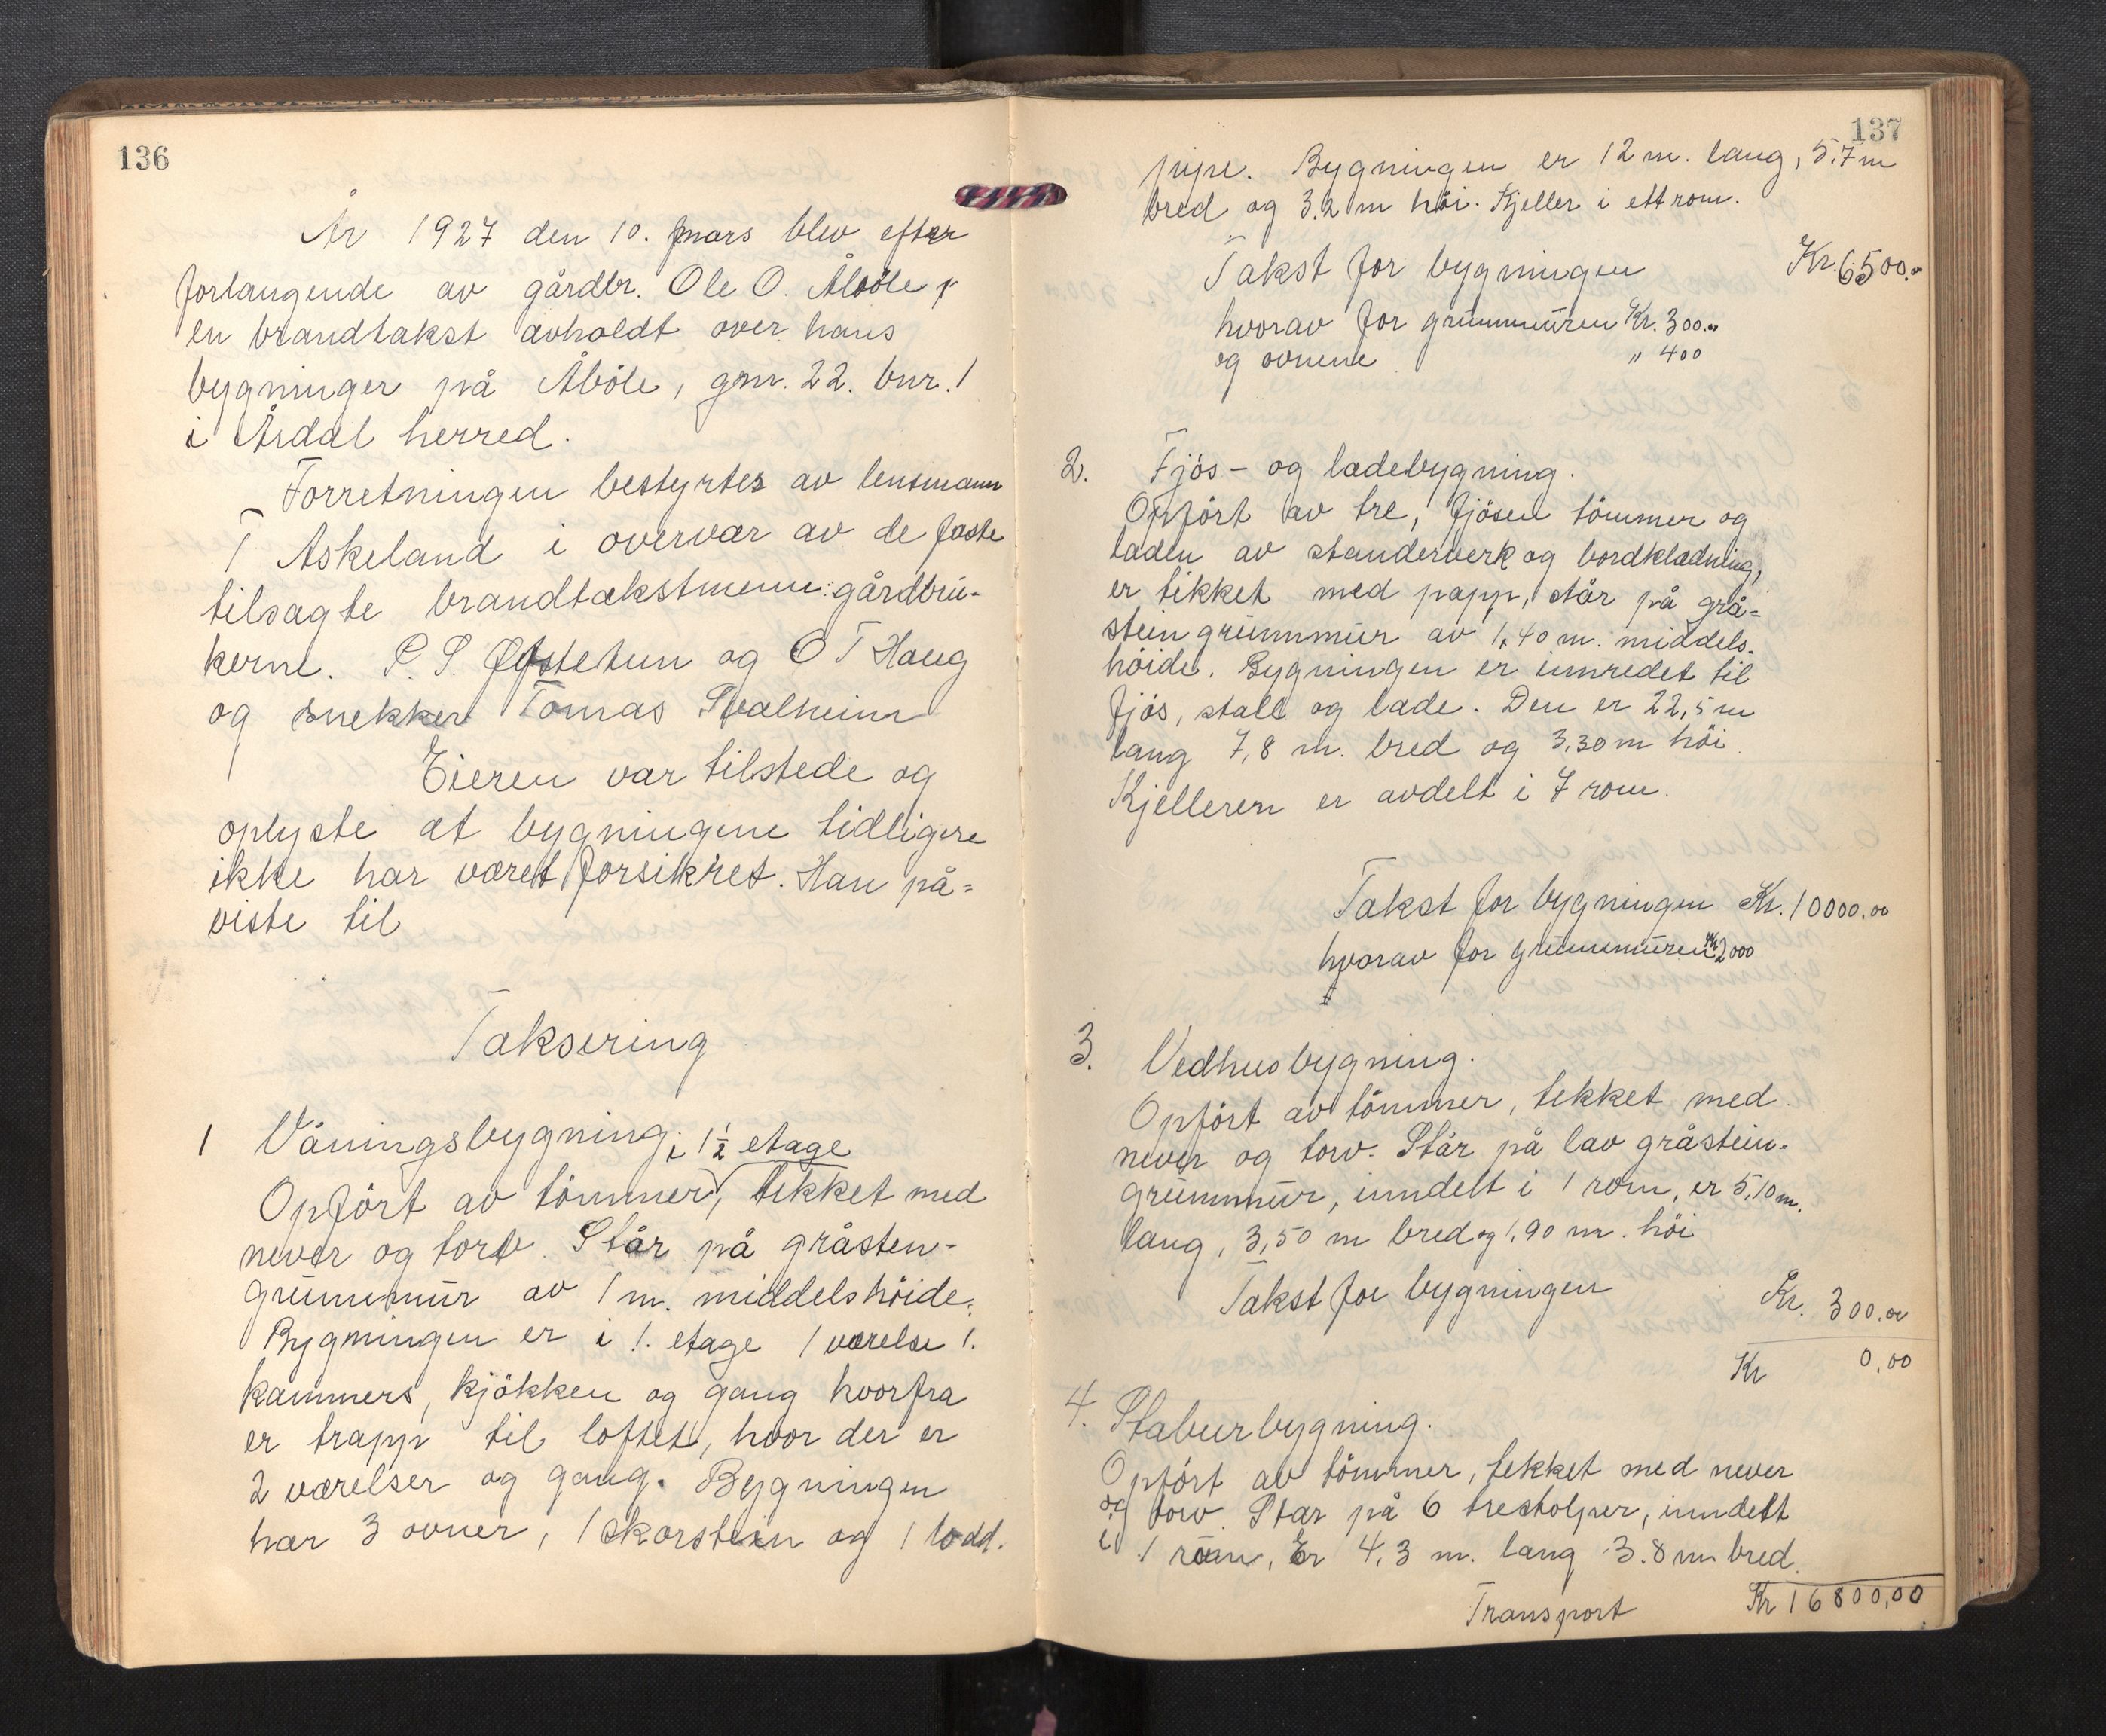 136
År 1927 den 10. mars blev efter
forlangende av gårdbr. Ole O. Åböle
en brandtakst avholdt over hans
bygninger på Åböle, gnr. 22. bnr. 1
i Årdal herred.
Forretningen bestyrtes av lensmann
T Askeland i overvær av de faste
tilsagte brandtakstmenn: gårdbru-
kerne. P. S. Øfstetun og O T Haug
og snekker Tomas Svalheim
Eieren var tilstede og
oplyste at bygningene tidligere
ikke har været forsikret. Han på=
viste til
Taksering
1 Våningsbygning i 1½ etage
Opfört av tömmer, tekket med
never og torv. Står på gråsten-
grunnmur av 1 m. middelshöide.
Bygningen er i 1. etage 1 værelse 1.
kammers, kjökken og gang hvorfra
er trapp til loftet, hvor der er
2 værelser og gang. Bygningen
har 3 ovner, 1 skorstein og 1 lodd.
137
pipe. Bygningen er 12 m. lang, 5.7 m
bred og 3.2 m höi. Kjeller i ett rom.
Takst for bygningen Kr. 6500.00
hvorav for grunnmuren Kr. 300.00
og ovnene " 400
2. Fjös- og ladebygning.
Opfört av tre, fjösen tömmer og
laden av standerverk og bordklædning,
er tekket med papp, står på grå=
stein grunnmur av 1,40 m. middels-
höide. Bygningen er innredet til
fjös, stall og lade. Den er 22,5 m
lang 7,8 m. bred og 3,30 m höi.
Kjelleren er avdelt i 7 rom.
Takst for bygningen Kr. 10000.00
hvorav for grunnmuren Kr 2000
3. Vedhusbygning.
Opfört av tömmer, tekket med
never og torv. Står på lav gråstein-
grunnmur, inndelt i 1 rom, er 5,10 m.
lang, 3,50 m bred og 1,90 m. höi
Takst for bygningen Kr. 300.00
Kr 0,00
4. Staburbygning.
Opfört av tömmer, tekket med never
og torv. Står på 6 trestolper, inndelt
i 1 rom, Er 4,3 m. lang 3.8 m bred.
Transport Kr 16800,00